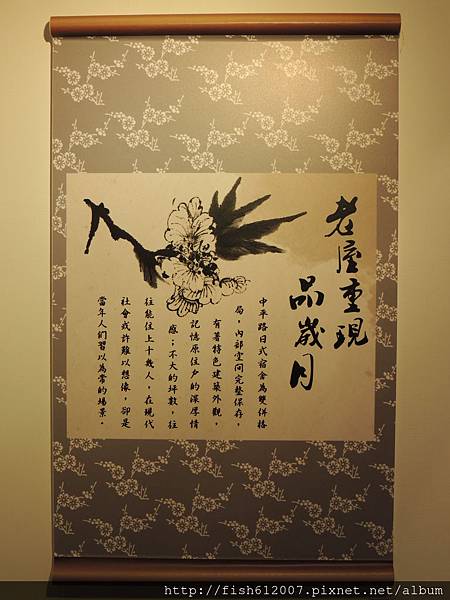 老屋重現
品歲月
中平路日式宿舍為雙併格
局，內部空間完整保存，
有著特色建築外觀，
記憶原住戶的深厚情
感；不大的坪數，往
往能住上十幾人，在現代
社會或許難以想像，卻是
當年人們習以為常的場景。
http://fish612007.pixnet.net/album